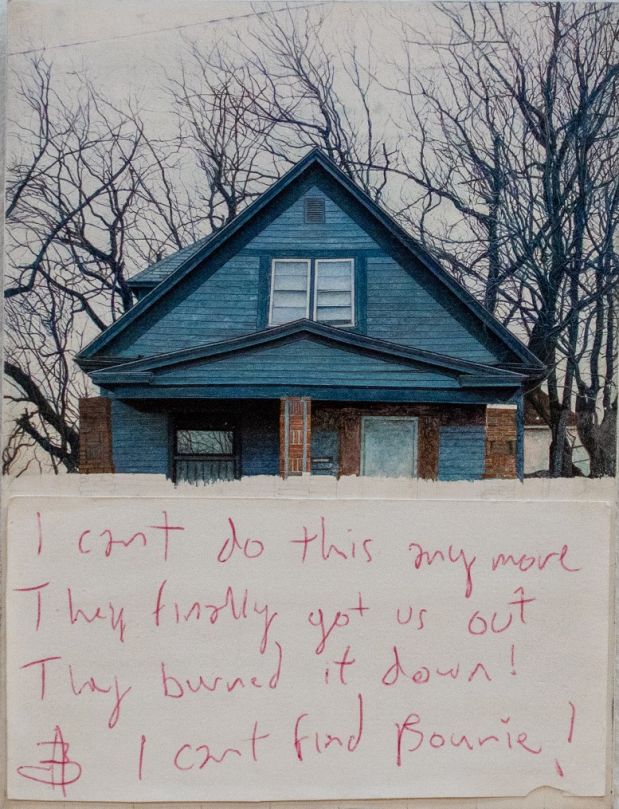 I cant do this any more
They finally got us out
They burned it down!
I cant find Bonnie!